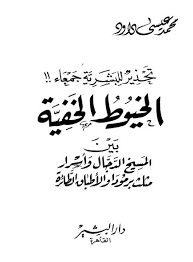 محمد عيسى داود
تحذير للبشرية جمعاء !!
الخيوط الخفية
بين
المسيح الدجال وأسرار
مثلث برمودا والأطباق الطائرة
دار البشير
القاهرة